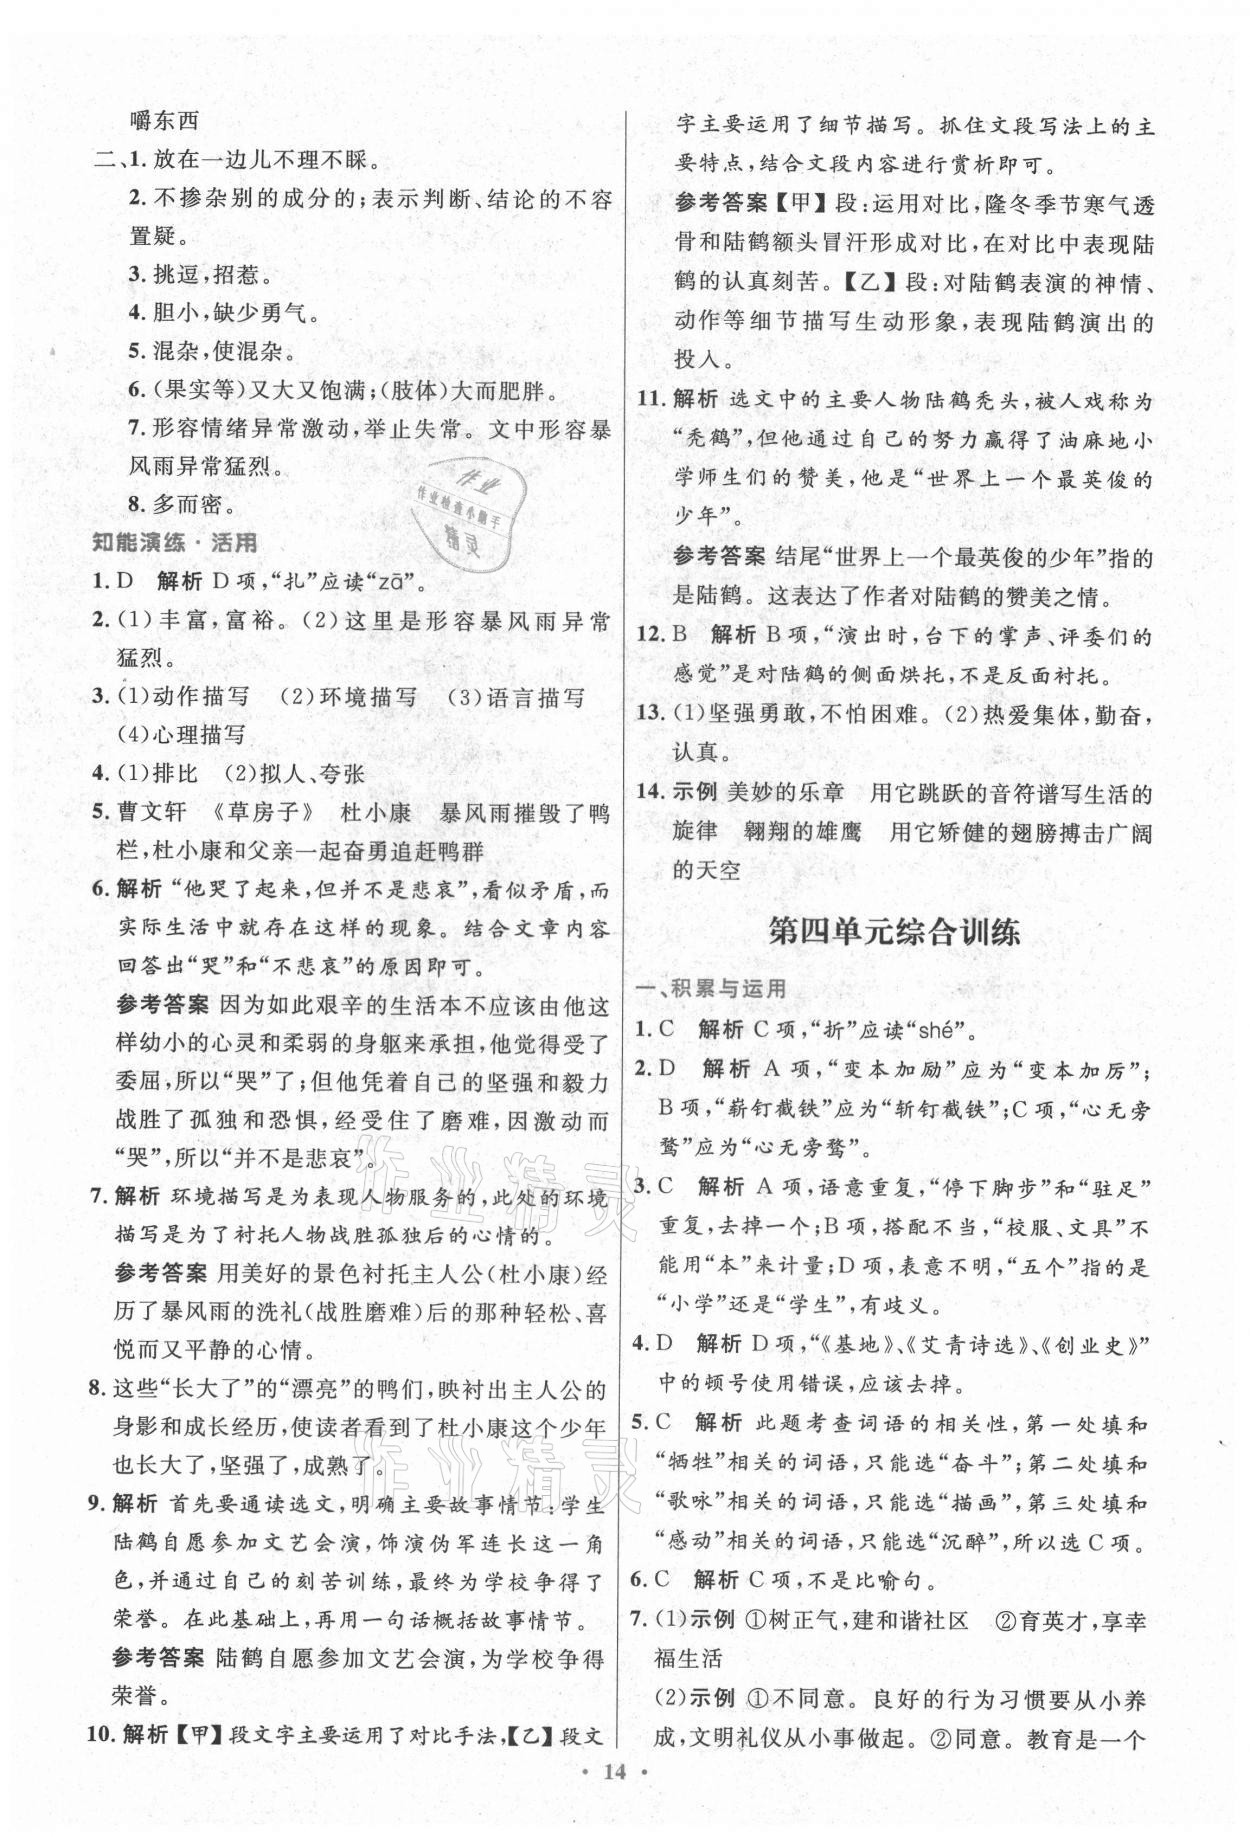 嚼东西
二、1. 放在一边儿不理不睬。
2. 不掺杂别的成分的;表示判断、结论的不容
置疑。
3. 挑逗,招惹。
4. 胆小,缺少勇气。
5. 混杂,使混杂。
6. (果实等)又大又饱满;(肢体)大而肥胖。
7. 形容情绪异常激动,举止失常。文中形容暴
风雨异常猛烈。
8. 多而密。
知能演练·活用
1. D 解析 D项,“扎”应读“zā”。
2. (1)丰富,富裕。(2)这里是形容暴风雨异常
猛烈。
3. (1)动作描写 (2)环境描写 (3)语言描写
(4)心理描写
4. (1)排比 (2)拟人、夸张
5. 曹文轩 《草房子》 杜小康 暴风雨摧毁了鸭
栏,杜小康和父亲一起奋勇追赶鸭群
6. 解析 “他哭了起来,但并不是悲哀”,看似矛盾,而
实际生活中就存在这样的现象。结合文章内容
回答出“哭”和“不悲哀”的原因即可。
参考答案 因为如此艰辛的生活本不应该由他这
样幼小的心灵和柔弱的身躯来承担,他觉得受了
委屈,所以“哭”了;但他凭着自己的坚强和毅力
战胜了孤独和恐惧,经受住了磨难,因激动而
“哭”,所以“并不是悲哀”。
7. 解析 环境描写是为表现人物服务的,此处的环境
描写是为了衬托人物战胜孤独后的心情的。
参考答案 用美好的景色衬托主人公(杜小康)经
历了暴风雨的洗礼(战胜磨难)后的那种轻松、喜
悦而又平静的心情。
8. 这些“长大了”的“漂亮”的鸭们,映衬出主人公的
身影和成长经历,使读者看到了杜小康这个少年
也长大了,坚强了,成熟了。
9. 解析 首先要通读选文,明确主要故事情节:学生
陆鹤自愿参加文艺会演,饰演伪军连长这一角
色,并通过自己的刻苦训练,最终为学校争得了
荣誉。在此基础上,再用一句话概括故事情节。
参考答案 陆鹤自愿参加文艺会演,为学校争得
荣誉。
10. 解析【甲】段文字主要运用了对比手法,【乙】段文
字主要运用了细节描写。抓住文段写法上的主
要特点,结合文段内容进行赏析即可。
参考答案【甲】段:运用对比,隆冬季节寒气透
骨和陆鹤额头冒汗形成对比,在对比中表现陆
鹤的认真刻苦。【乙】段:对陆鹤表演的神情、
动作等细节描写生动形象,表现陆鹤演出的
投入。
11. 解析 选文中的主要人物陆鹤秃头,被人戏称为
“秃鹤”,但他通过自己的努力赢得了油麻地小
学师生们的赞美,他是“世界上一个最英俊的
少年”。
参考答案 结尾“世界上一个最英俊的少年”指的
是陆鹤。这表达了作者对陆鹤的赞美之情。
12. B 解析 B项,“演出时,台下的掌声、评委们的
感觉”是对陆鹤的侧面烘托,不是反面衬托。
13. (1)坚强勇敢,不怕困难。(2)热爱集体,勤奋,
认真。
14. 示例 美妙的乐章 用它跳跃的音符谱写生活的
旋律 翱翔的雄鹰 用它矫健的翅膀搏击广阔
的天空
第四单元综合训练
一、积累与运用
1. C 解析 C项,“折”应读“shé”。
2. D 解析 A项,“变本加励”应为“变本加厉”;
B项,“崭钉截铁”应为“斩钉截铁”;C项,“心无旁
鹜”应为“心无旁骛”。
3. C 解析 A项,语意重复,“停下脚步”和“驻足”
重复,去掉一个;B项,搭配不当,“校服、文具”不
能用“本”来计量;D项,表意不明,“五个”指的是
“小学”还是“学生”,有歧义。
4. D 解析 D项,“《基地》、《艾青诗选》、《创业史》”
中的顿号使用错误,应该去掉。
5. C 解析 此题考查词语的相关性,第一处填和
“牺牲”相关的词语,只能选“奋斗”;第二处填和
“歌咏”相关的词语,只能选“描画”,第三处填和
“感动”相关的词语,只能选“沉醉”,所以选C项。
6. C 解析 C项,不是比喻句。
7. (1)示例 ①树正气,建和谐社区 ②育英才,享幸
福生活
(2)示例 ①不同意。良好的行为习惯要从小养
成,文明礼仪从小事做起。②同意。教育是一个
· 14 ·
作业
作业检查小助手
精灵
作业精灵
作业精灵